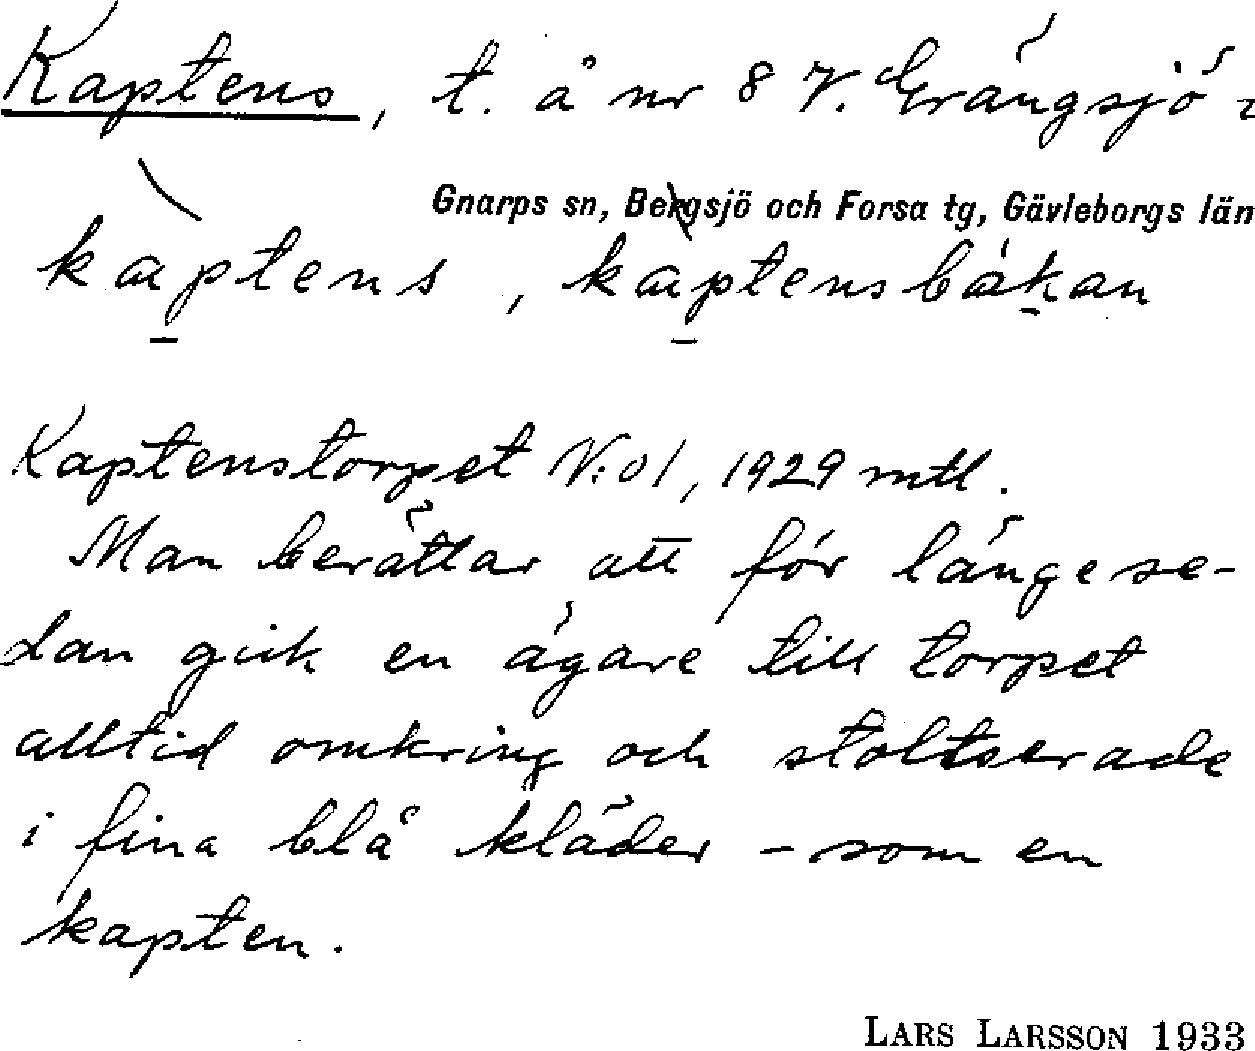 Kaptens, t. å nr 8 V. Grängsjö i
Gnarps sn, Bergsjö och Forsa tg, Gävleborgs län
kaptens, kaptensbakan
Kaptenstorpet N:o 1, 1929 mtl.
Man berättar att för länge se-
dan gick en ägare till torpet
alltid omkring och stoltserade
i fina blå kläder - som en
kapten.
LARS LARSSON 1933